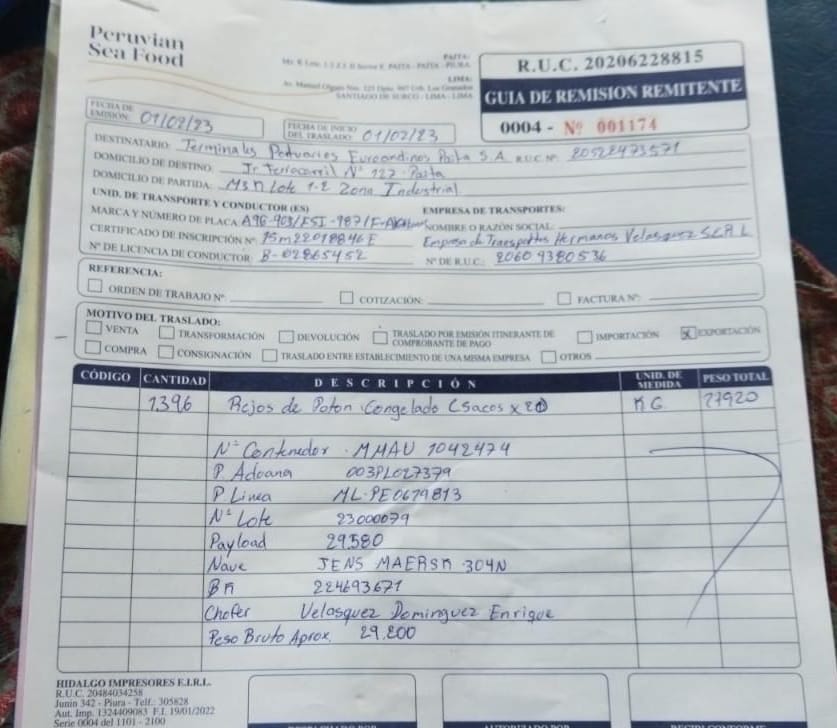 Peruvian
Sea Food
PAITA:
Mz. B Lote. 1-2 Z. I. II PAITA - PAITA - PIURA
LIMA:
SANTIAGO DE SURCO - LIMA - LIMA
R.U.C. 20206228815
GUIA DE REMISION REMITENTE
0004 - Nº 001174
FECHA DE EMISIÓN: 01/02/23
FECHA DE INICIO DEL TRASLADO: 01/02/23
DESTINATARIO: Terminales Portuarios Euroandinos Paita S.A R.U.C Nº: 20522473571
DOMICILIO DE DESTINO: Jr Ferrocarril Nº 127 - Paita
DOMICILIO DE PARTIDA: Mz n Lote 1-2 Zona Industrial
UNID. DE TRANSPORTE Y CONDUCTOR (ES)
EMPRESA DE TRANSPORTES:
MARCA Y NÚMERO DE PLACA: A9G-903/FSI-987/
NOMBRE O RAZÓN SOCIAL:
CERTIFICADO DE INSCRIPCIÓN Nº: 15m22018846E
Empresa de Transportes Hermanos Velasquez S.C.R.L
Nº DE LICENCIA DE CONDUCTOR: B-02865452
Nº DE R.U.C.: 20609380536
REFERENCIA:
ORDEN DE TRABAJO Nº:
COTIZACIÓN:
FACTURA Nº:
MOTIVO DEL TRASLADO:
VENTA TRANSFORMACIÓN DEVOLUCIÓN TRASLADO POR EMISIÓN ITINERANTE DE COMPROBANTE DE PAGO IMPORTACIÓN X EXPORTACIÓN
COMPRA CONSIGNACIÓN TRASLADO ENTRE ESTABLECIMIENTO DE UNA MISMA EMPRESA OTROS
CÓDIGO CANTIDAD DESCRIPCIÓN UNID. DE MEDIDA PESO TOTAL
1.396 Rejos de Poton Congelado (Sacos x 20) KG 27920
Nº Contenedor . MMAU 1042474
P. Aduana 003PL027379
P. Linea ML-PE0679813
Nº Lote 23000079
Payload 29.580
Nave JENS MAERSK 304N
BK 224693671
Chofer Velasquez Dominguez Enrique
Peso Bruto Aprox. 29.200
HIDALGO IMPRESORES E.I.R.L.
R.U.C. 20484034258
Junin 342 - Piura - Telf.: 305828
Aut. Imp. 1324409083 F.I. 19/01/2022
Serie 0004 del 1101 - 2100